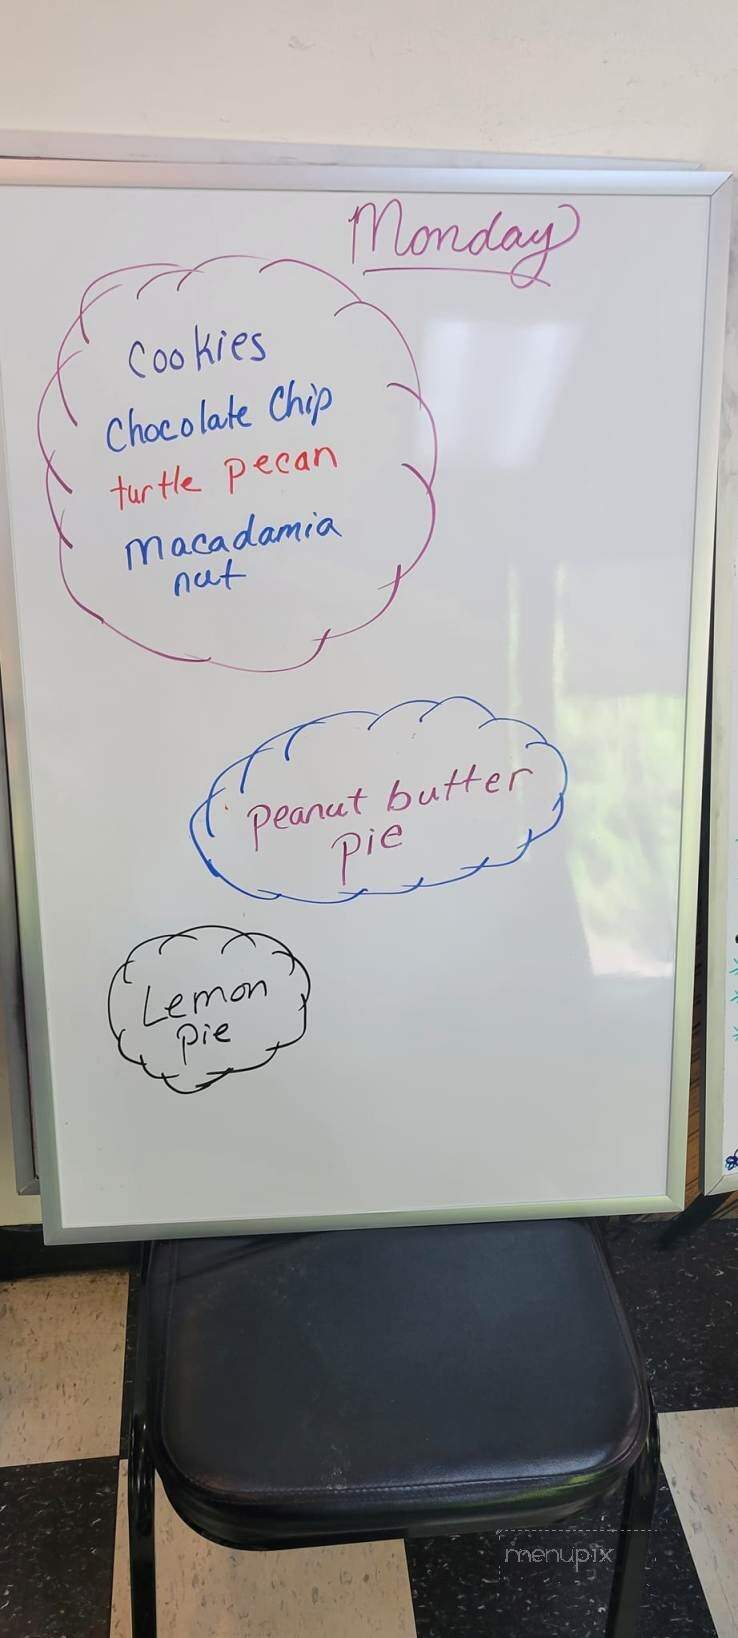 Monday
Cookies
Chocolate Chip
turtle pecan
macadamia
nut
peanut butter
pie
Lemon
pie
menupix